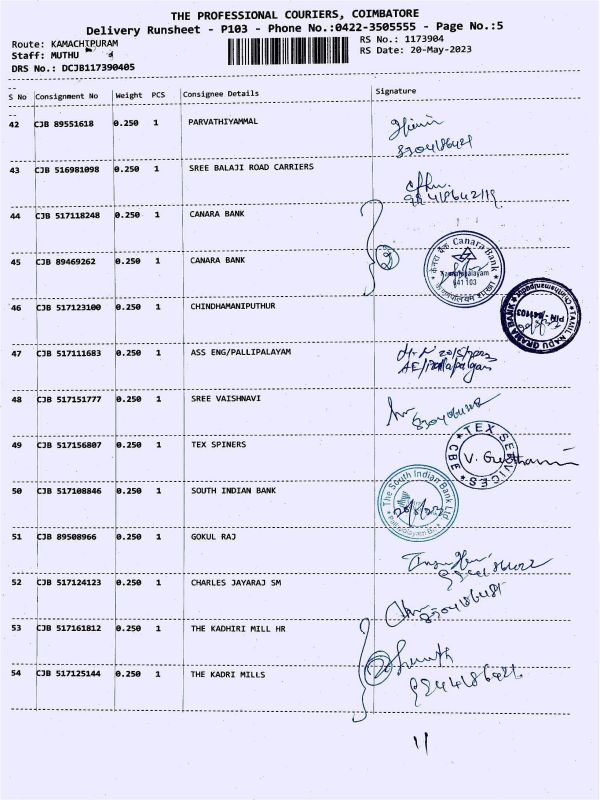 THE PROFESSIONAL COURIERS, COIMBATORE
Delivery Runsheet - P103 - Phone No.:0422-3505555 - Page No.:5
Route: KAMACHIPURAM
RS No.: 1173904
Staff: MUTHU
RS Date: 20-May-2023
DRS No.: DCJB117390405
S No Consignment No Weight PCS Consignee Details Signature
42 CJB 89551618 0.250 1 PARVATHIYAMMAL
43 CJB 516981098 0.250 1 SREE BALAJI ROAD CARRIERS
44 CJB 517118248 0.250 1 CANARA BANK
45 CJB 89469262 0.250 1 CANARA BANK
2
केनरा बैंक Canara Bank
641 103
46 CJB 517123100 0.250 1 CHINDHAMANIPUTHUR
TAMIL NADU GRAMA BANK
PIN - 641103
47 CJB 517111683 0.250 1 ASS ENG/PALLIPALAYAM
20/5/2023
48 CJB 517151777 0.250 1 SREE VAISHNAVI
49 CJB 517156807 0.250 1 TEX SPINERS
TEX SERVICES
CBE
50 CJB 517108846 0.250 1 SOUTH INDIAN BANK
The South Indian Bank Ltd
51 CJB 89508966 0.250 1 GOKUL RAJ
52 CJB 517124123 0.250 1 CHARLES JAYARAJ SM
53 CJB 517161812 0.250 1 THE KADHIRI MILL HR
54 CJB 517125144 0.250 1 THE KADRI MILLS
2
11